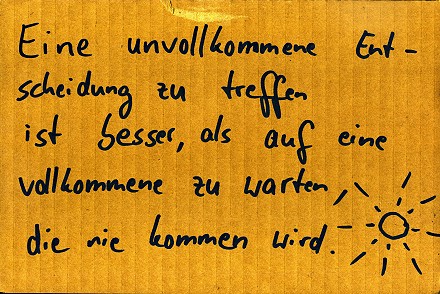 Eine unvollkommene Ent-
scheidung zu treffen
ist besser, als auf eine
vollkommene zu warten
die nie kommen wird.